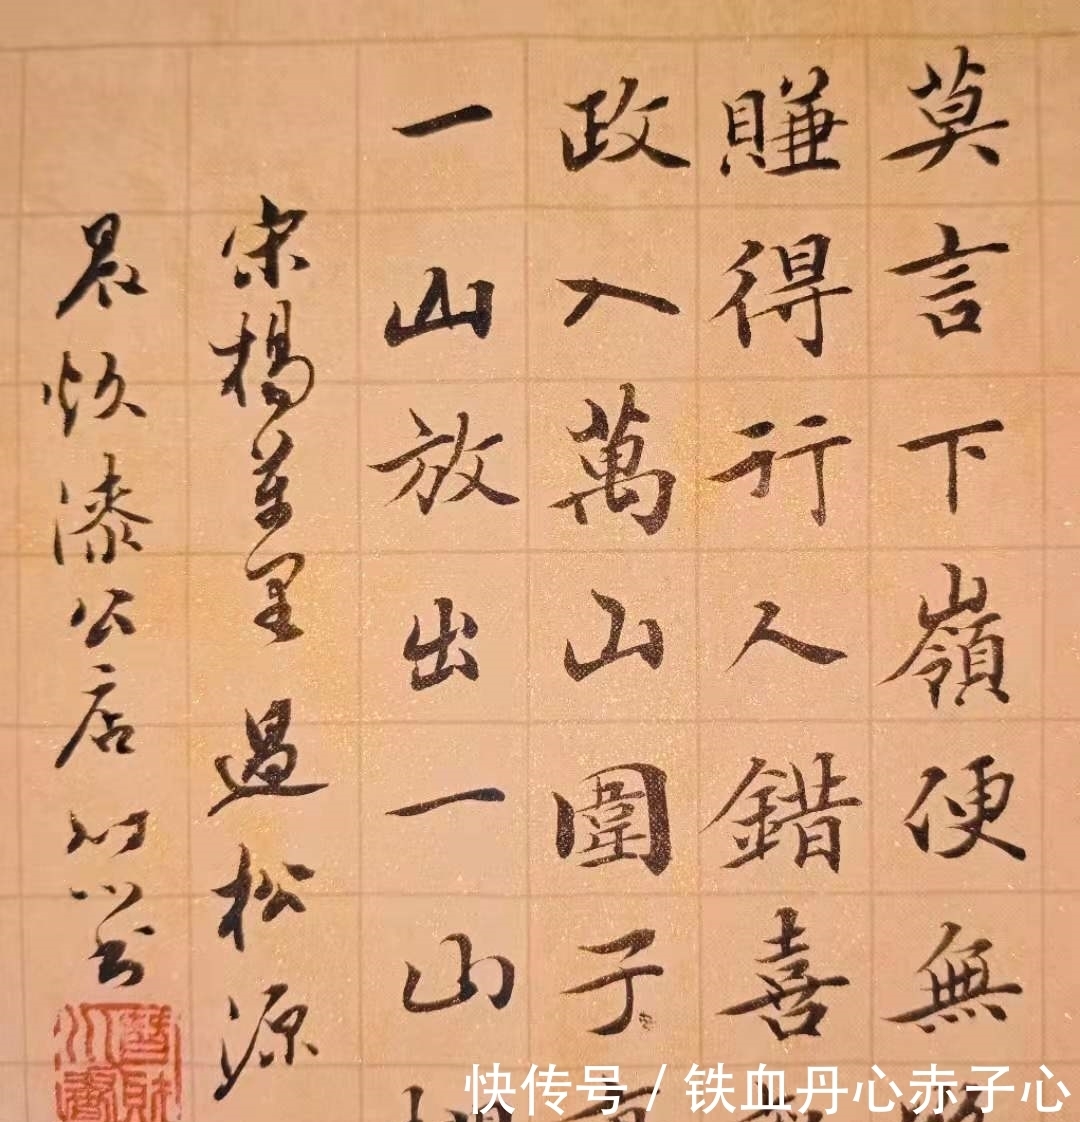 莫言下嶺便無
賺得行人錯喜
政入萬山圍子
一山放出一山
宋楊萬里 過松源
晨炊漆公店
快传号 / 铁血丹心赤子心